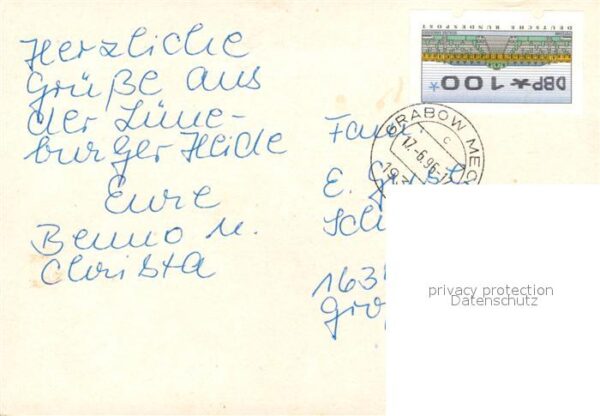 Herzliche
Grüße aus
der Lüne-
burger Heide
Eure
Benno u.
Christa
DEUTSCHE BUNDESPOST
DBP * 100 *
GRABOW MEC
17.-6.96-17
Fam
E.
1634
privacy protection
Datenschutz